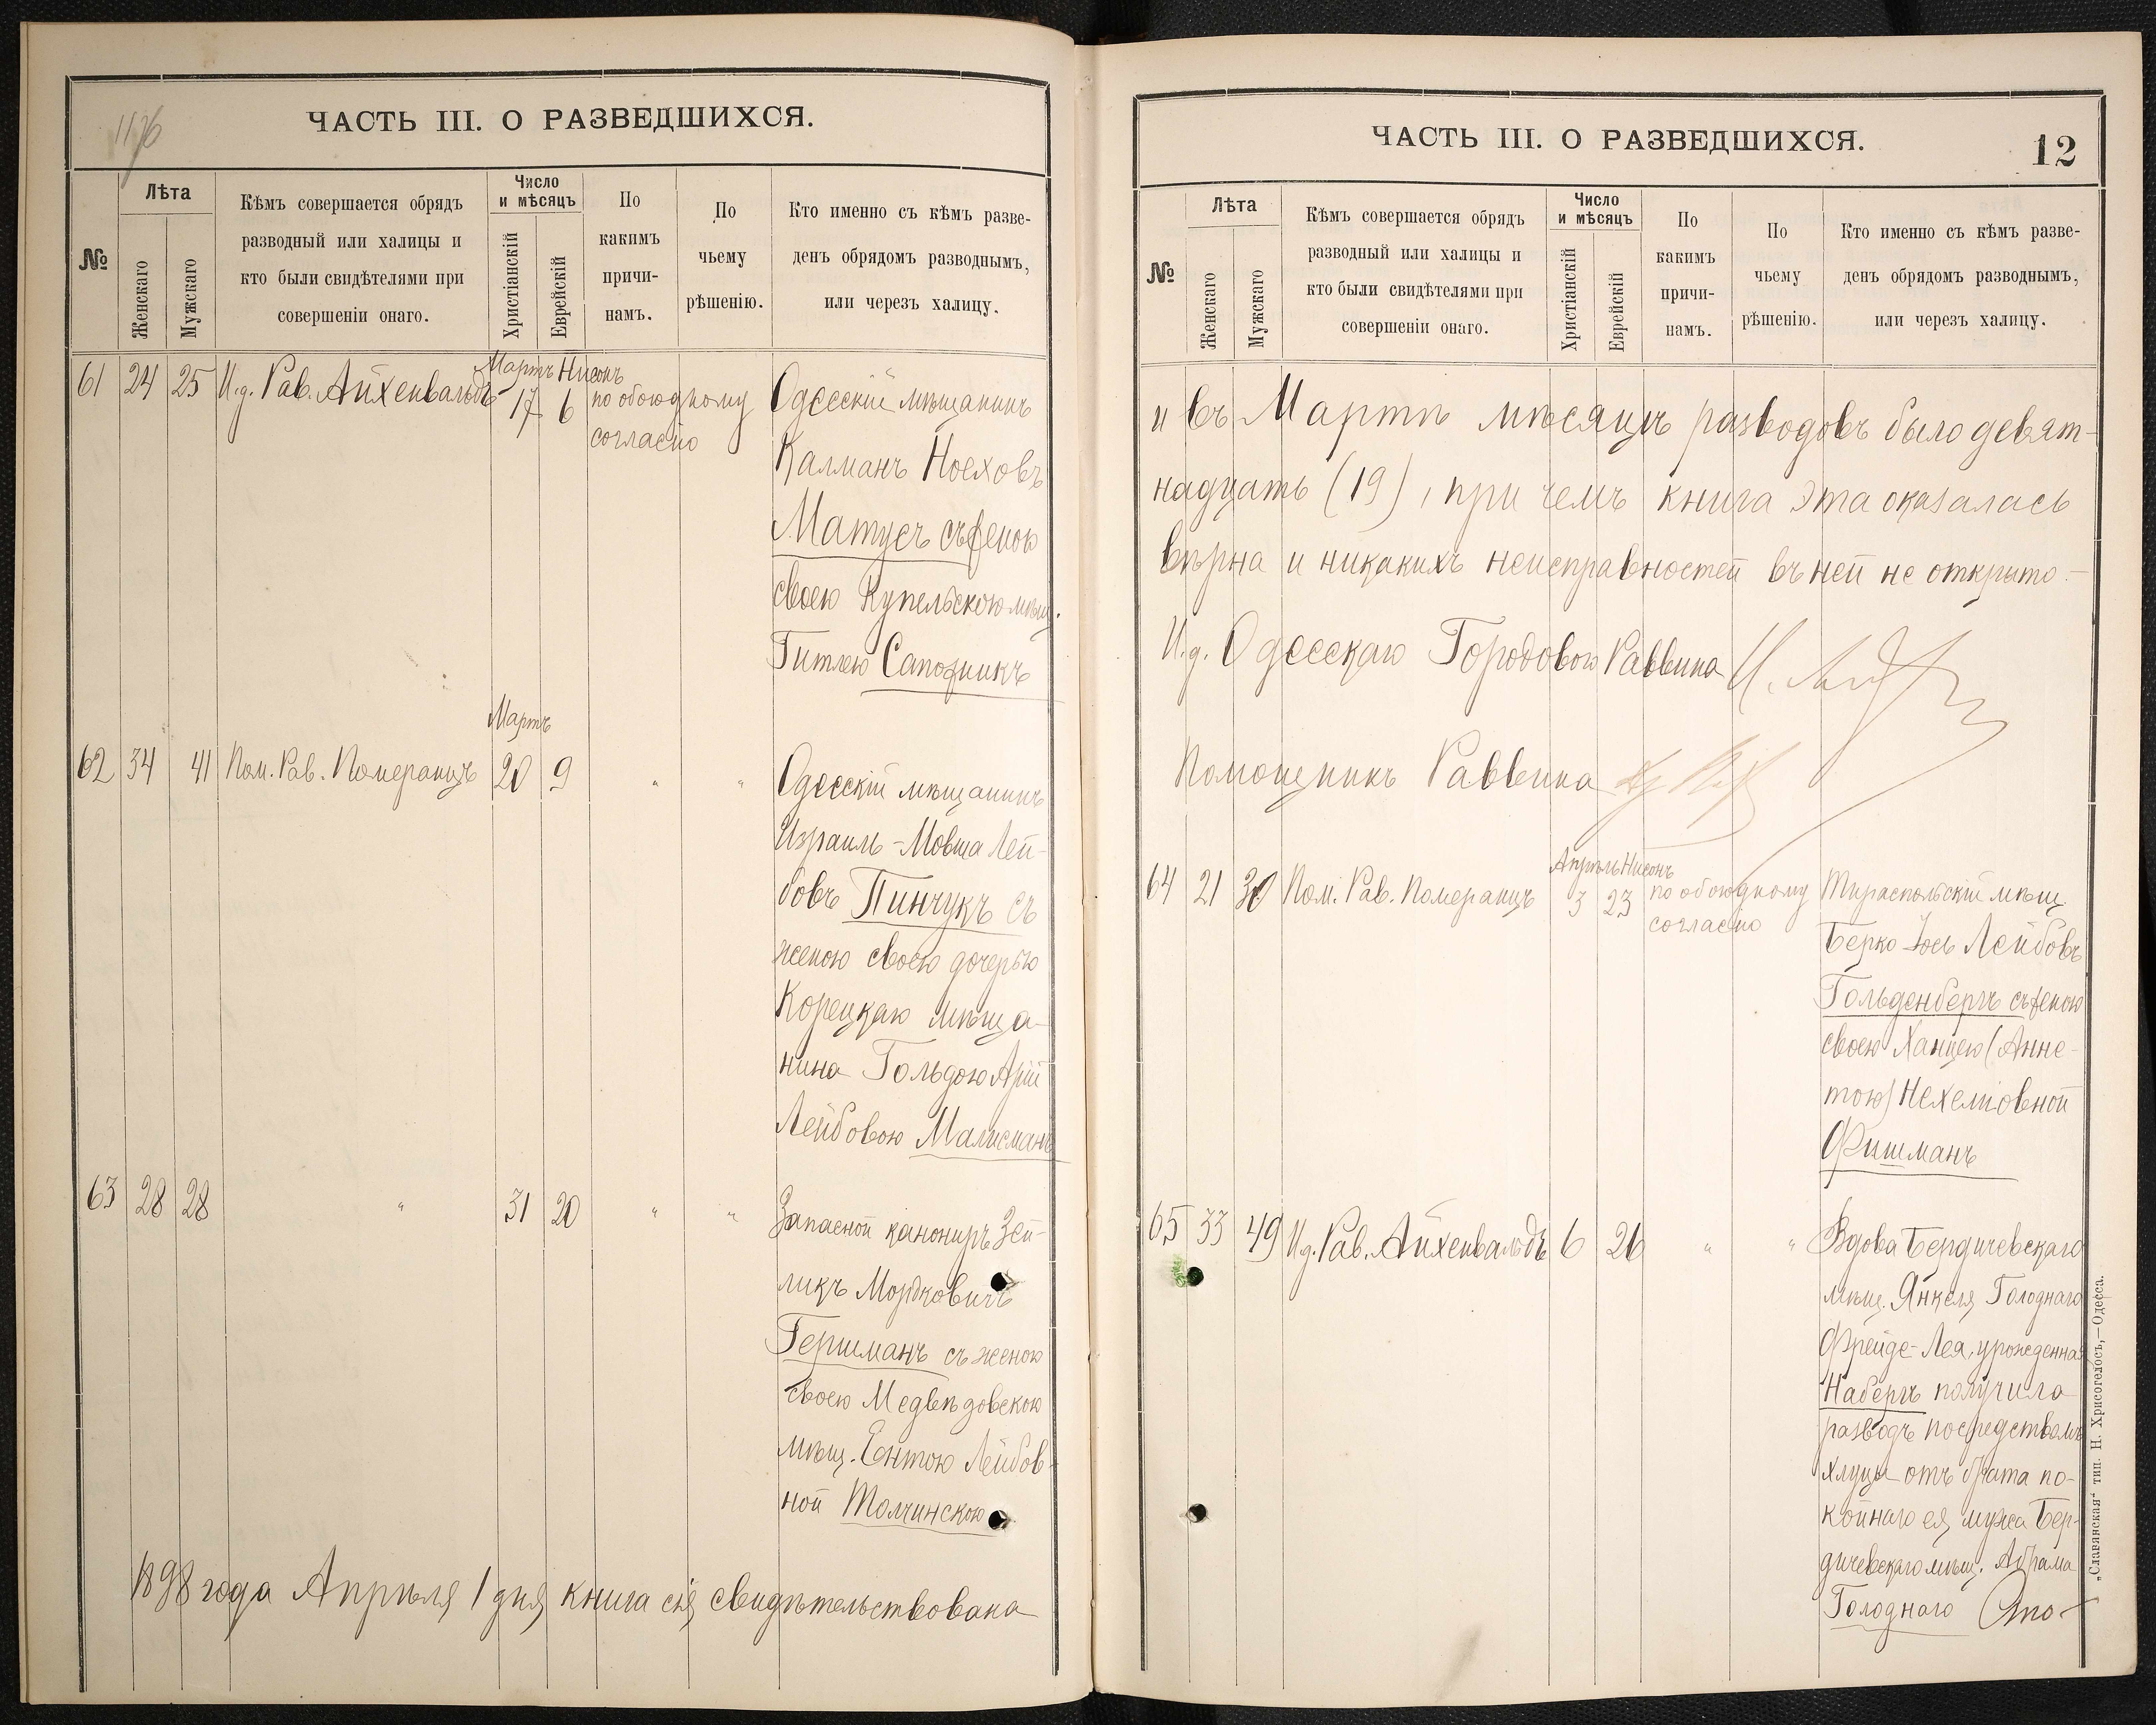 1176
ЧАСТЬ III. О РАЗВЕДШИХСЯ.
№
Лѣта
Женскаго
Мужскаго
Кѣмъ совершается обрядъ
разводный или халицы и
кто были свидѣтелями при
совершеніи онаго.
Число
и мѣсяцъ
Христіанскій
Еврейскій
По
какимъ
причи-
намъ.
По
чьему
рѣшенію.
Кто именно съ кѣмъ разве-
денъ обрядомъ разводнымъ,
или черезъ халицу.
Мартъ Нисонъ
61 24 25 И.д. Рав. Айхенвальдъ 17 6 по обоюдному
согласію
Одесскій мѣщанинъ
Калманъ Ноеховъ
Матусъ съ женою
своею Купельскою мѣщ.
Гитлею Сапожникъ
Мартъ
62 34 41 Пом. Рав. Померанцъ 20 9 " "
Одесскій мѣщанинъ
Израиль-Мовша Лей-
бовъ Пинчукъ съ
женою своею дочерью
Корецкаго мѣща-
нина Гольдою Арій
Лейбовою Малисманъ
63 28 28 " 31 20 " "
Запасной канониръ Зей-
ликъ Мордковичъ
Гершманъ съ женою
своею Медвѣдовскою
мѣщ. Ентою Лейбов-
ной Толчинскою
1898 года Апрѣля 1 дня книга сія свидѣтельствована
ЧАСТЬ III. О РАЗВЕДШИХСЯ.
12
№
Лѣта
Женскаго
Мужскаго
Кѣмъ совершается обрядъ
разводный или халицы и
кто были свидѣтелями при
совершеніи онаго.
Число
и мѣсяцъ
Христіанскій
Еврейскій
По
какимъ
причи-
намъ.
По
чьему
рѣшенію.
Кто именно съ кѣмъ разве-
денъ обрядомъ разводнымъ,
или черезъ халицу.
и въ Мартѣ мѣсяцѣ разводовъ было девят-
надцать (19), при чемъ книга эта оказалась
вѣрна и никакихъ неисправностей въ ней не открыто.-
И.д. Одесскаго Городового Раввина
Помощникъ Раввина
Апрѣль Нисонъ
64 21 30 Пом. Рав. Померанцъ 3 23 по обоюдному
согласію
Тираспольскій мѣщ.
Берко Іось Лейбовъ
Гольденбергъ съ женою
своею Ханцею (Анне-
тою) Нехеміовной
Фишманъ
65 33 49 И.д. Рав. Айхенвальдъ 6 26 " "
Вдова Бердичевскаго
мѣщ. Янкеля Голоднаго
Фрейде-Лея, урожденная
Набергъ получила
разводъ посредствомъ
хлицы отъ брата по-
койнаго ея мужа Бер-
дичевскаго мѣщ. Абрама
Голоднаго Ото-
„Славянская“ тип. Н. Хрисогелосъ,—Одесса.